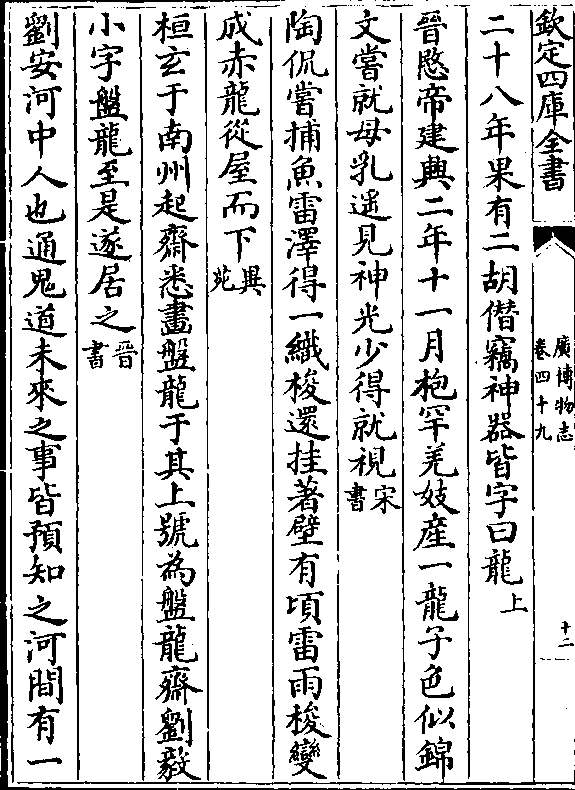 欽定四庫全書
廣博物志
卷四十九
十二
二十八年果有二胡僭竊神器皆字曰龍上
晉愍帝建興二年十一月枹罕羌妓産一龍子色似錦
文嘗就母乳遥見神光少得就視宋書
陶侃嘗捕魚雷澤得一織梭還挂著壁有頃雷雨梭變
成赤龍從屋而下異苑
桓玄于南州起齋悉畫盤龍于其上號為盤龍齋劉毅
小字盤龍至是遂居之晉書
劉安河中人也通鬼道未來之事皆預知之河間有一